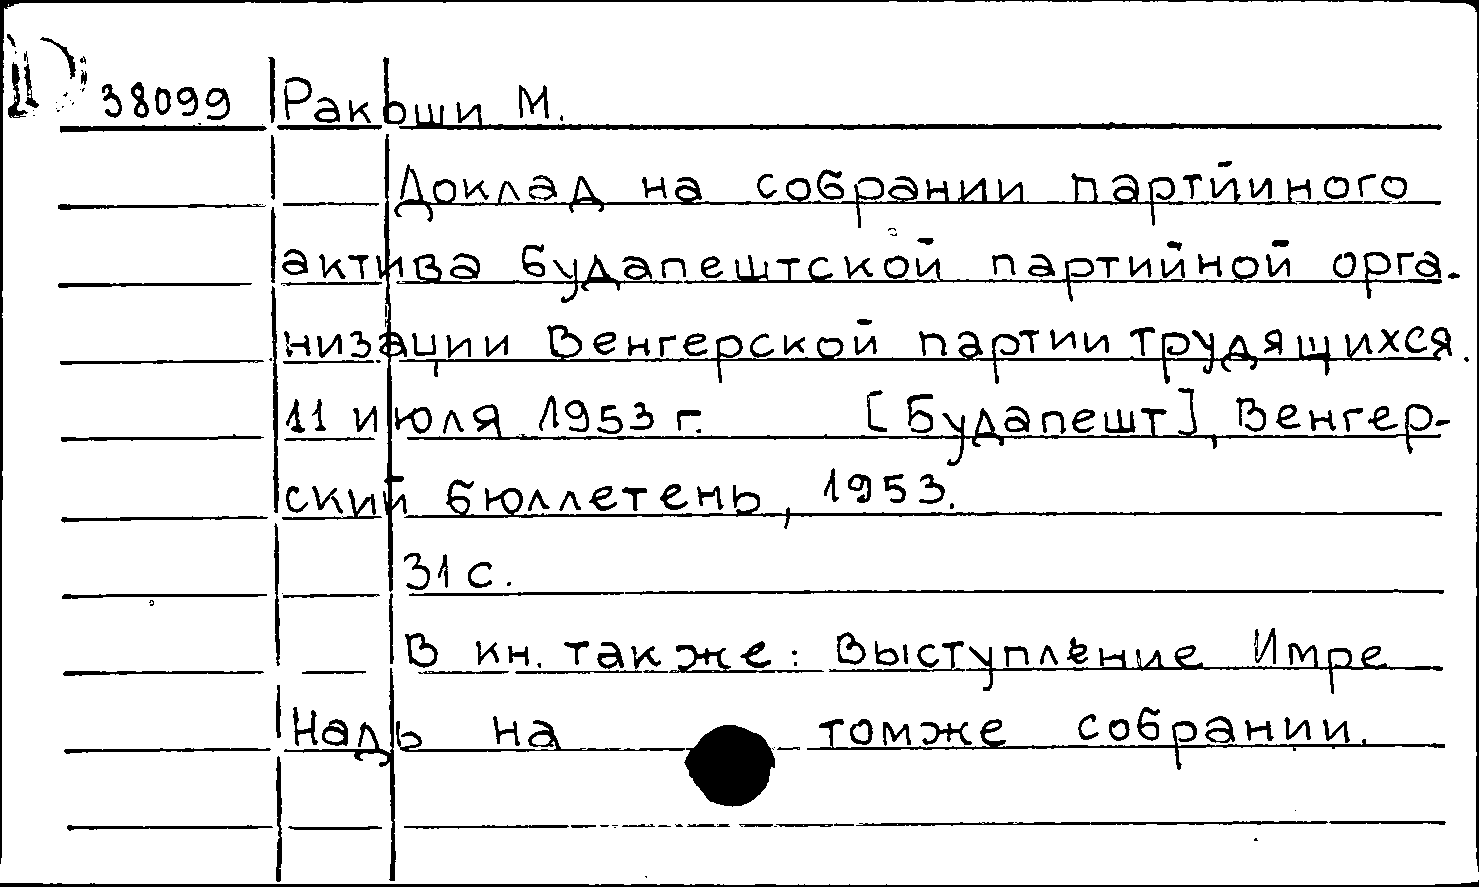 38099 Ракоши М.
Доклад на собрании партийного
актива будапештской партийной орга-
низации Венгерской партии трудящихся.
11 июля 1953 г. [Будапешт], Венгер-
ский бюллетень, 1953.
31 с.
В кн. также: Выступление Имре
Надь на томже собрании.